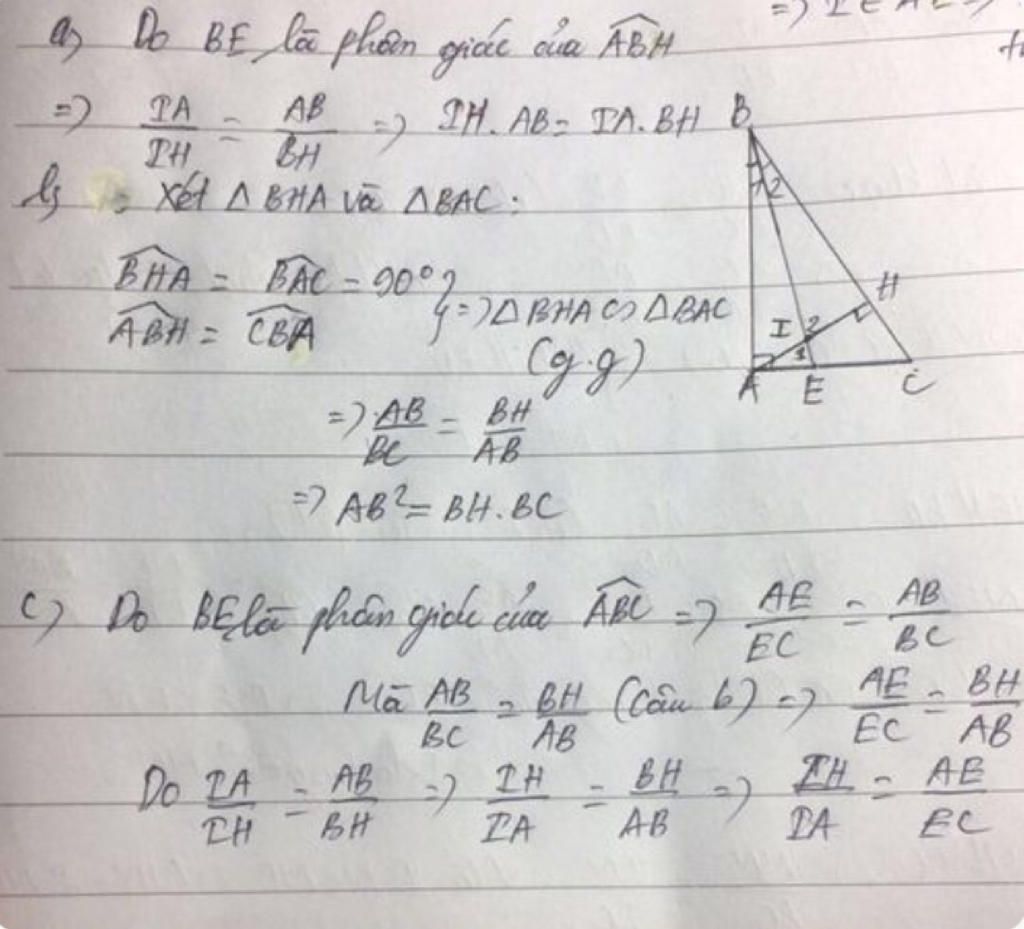 => IEAE =>
a) Do BE là phân giác của \widehat{ABH}
=> IA/IH = AB/BH => IH. AB = IA. BH
b) Xét △BHA và △BAC:
\widehat{BHA} = \widehat{BAC} = 90°
\widehat{ABH} = \widehat{CBA}
} => △BHA ∽ △BAC
(g.g)
=> AB/BC = BH/AB
=> AB² = BH.BC
B
1 2
H
I 2
1
A E C
c) Do BE là phân giác của \widehat{ABC} => AE/EC = AB/BC
Mà AB/BC = BH/AB (câu b) => AE/EC = BH/AB
Do IA/IH = AB/BH => IH/IA = BH/AB => IH/IA = AE/EC